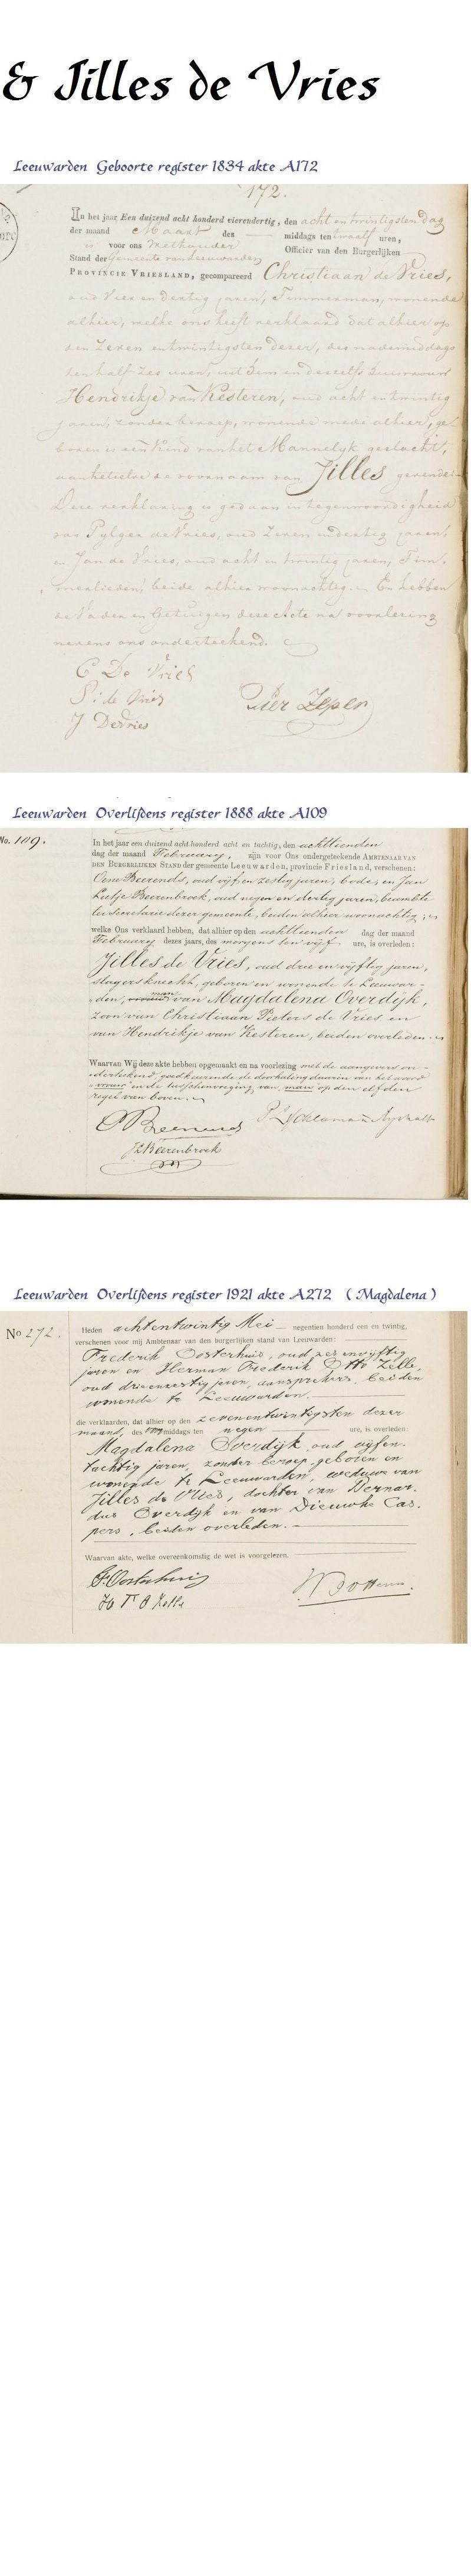 & Jilles de Vries
Leeuwarden Geboorte register 1834 akte A172
172.
In het jaar Een duizend acht honderd vierendertig, den acht en twintigsten dag
der maand Maart des middags ten twaalf uren,
voor ons Wethouder Officier van den Burgerlijken
Stand der Gemeente van Leeuwarden
PROVINCIE VRIESLAND, gecompareerd Christiaan de Vries,
oud Vier en dertig jaren, Timmerman, wonende
alhier, welke ons heeft verklaard dat alhier op
den Zeven en twintigsten dezer, des nademiddags
ten half zes uren, uit hem en deszelfs huisvrouw
Hendrikje van Kesteren, oud acht en twintig
jaren, zonder beroep, wonende mede alhier, ge-
boren is een Kind van het Mannelyk geslacht,
aan hetwelke de voornaam van Jilles gevende
Deze verklaring is gedaan in tegenwoordigheid
van Pytger de Vries, oud Zeven en dertig jaren,
en Jan de Vries, oud acht en twintig jaren, Tim-
merlieden, beide alhier woonachtig. En hebben
de Vader en Getuigen deze Acte na voorlezing
nevens ons onderteekend.
C De Vries
P: de Vries
J Devries
Pier Zeper
Leeuwarden Overlijdens register 1888 akte A109
No. 109.
In het jaar een duizend acht honderd acht en tachtig, den achttienden
dag der maand Februarij, zijn voor Ons ondergeteekende AMBTENAAR VAN
DEN BURGERLIJKEN STAND der gemeente Leeuwarden, provincie Friesland, verschenen:
Oene Beerends, oud vijf en zestig jaren, bode, en Jan
Luitje Beerenbroek, oud negen en dertig jaren, beambte
ter secretarie dezer gemeente, beiden alhier woonachtig;
welke Ons verklaard hebben, dat alhier op den achttienden dag der maand
Februarij dezes jaars, des morgens ten vijf ure, is overleden:
Jilles de Vries, oud drie en vijftig jaren,
slagersknecht, geboren en wonende te Leeuwar-
man
den, vrouw van Magdalena Overdijk,
zoon van Christiaan Pieters de Vries en
van Hendrikje van Kesteren, beiden overleden.
Waarvan Wij deze akte hebben opgemaakt en na voorlezing met de aangevers on-
derteekend, goedkeurende de doorhaling daarin van het woord
vrouw en de tusschenvoeging van man op den elfden
regel van boven.
O Beerends
JL Beerenbroek
Leeuwarden Overlijdens register 1921 akte A272 ( Magdalena )
No 272.
Heden achtentwintig Mei negentien honderd een en twintig,
verschenen voor mij Ambtenaar van den burgerlijken stand van Leeuwarden:
Frederik Oosterhuis, oud zes en vijftig
jaren en Herman Frederik Otto Zelle,
oud drieenzestig jaren, aansprekers, beiden
wonende te Leeuwarden.
die verklaarden, dat alhier op den zevenentwintigsten dezer
maand, des middags ten negen ure, is overleden:
Magdalena Overdijk, oud vijfen-
tachtig jaren, zonder beroep, geboren en
wonende te Leeuwarden, weduwe van
Jilles de Vries, dochter van Bernar-
dus Overdijk en van Dieuwke Cas-
pers, beiden overleden.
Waarvan akte, welke overeenkomstig de wet is voorgelezen.
F Oosterhuis
H F O Zelle